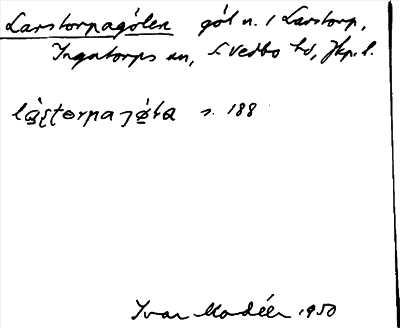 Larstorpagölen göl n. i Larstorp,
Ingatorps sn, S. Vedbo hd, Jkp. l.
s. 188
Ivar Modéer 1950